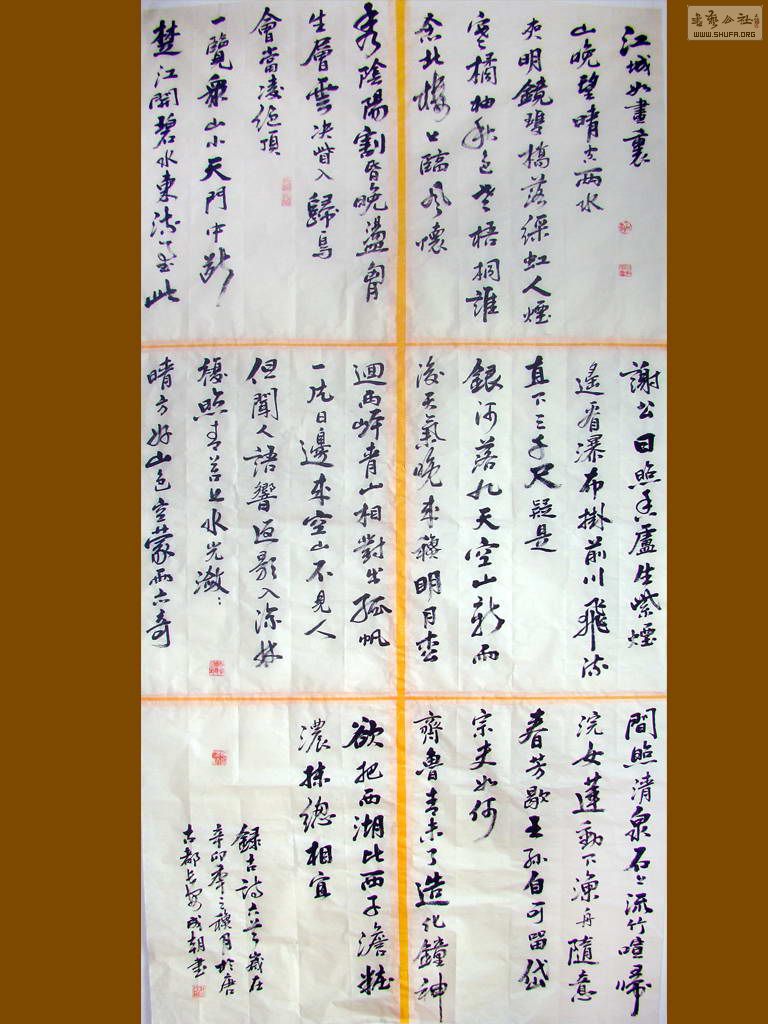 江城如畫裏
山晚望晴空兩水
夾明鏡雙橋落綵虹人煙
寒橘柚秋色老梧桐誰
念北樓上臨風懷
謝公日照香爐生紫煙
遙看瀑布掛前川飛流
直下三千尺疑是
銀河落九天空山新雨
後天氣晚來穐明月松
間照清泉石上流竹喧歸
浣女蓮動下漁舟隨意
春芳歇王孫自可留岱
宗夫如何
齊魯青未了造化鐘神
秀陰陽割昏晚盪胸
生層雲決眥入歸鳥
會當凌絕頂
一覽眾山小天門中斷
楚江開碧水東流至此
迴兩岸青山相對出孤帆
一片日邊來空山不見人
但聞人語響返影入深林
復照青苔上水光瀲:
晴方好山色空蒙雨亦奇
欲把西湖比西子澹粧
濃抹總相宜
錄古詩六首歲在
辛卯年之穐月於唐
古都長安成朝書
書藝公社
WWW.SHUFA.ORG